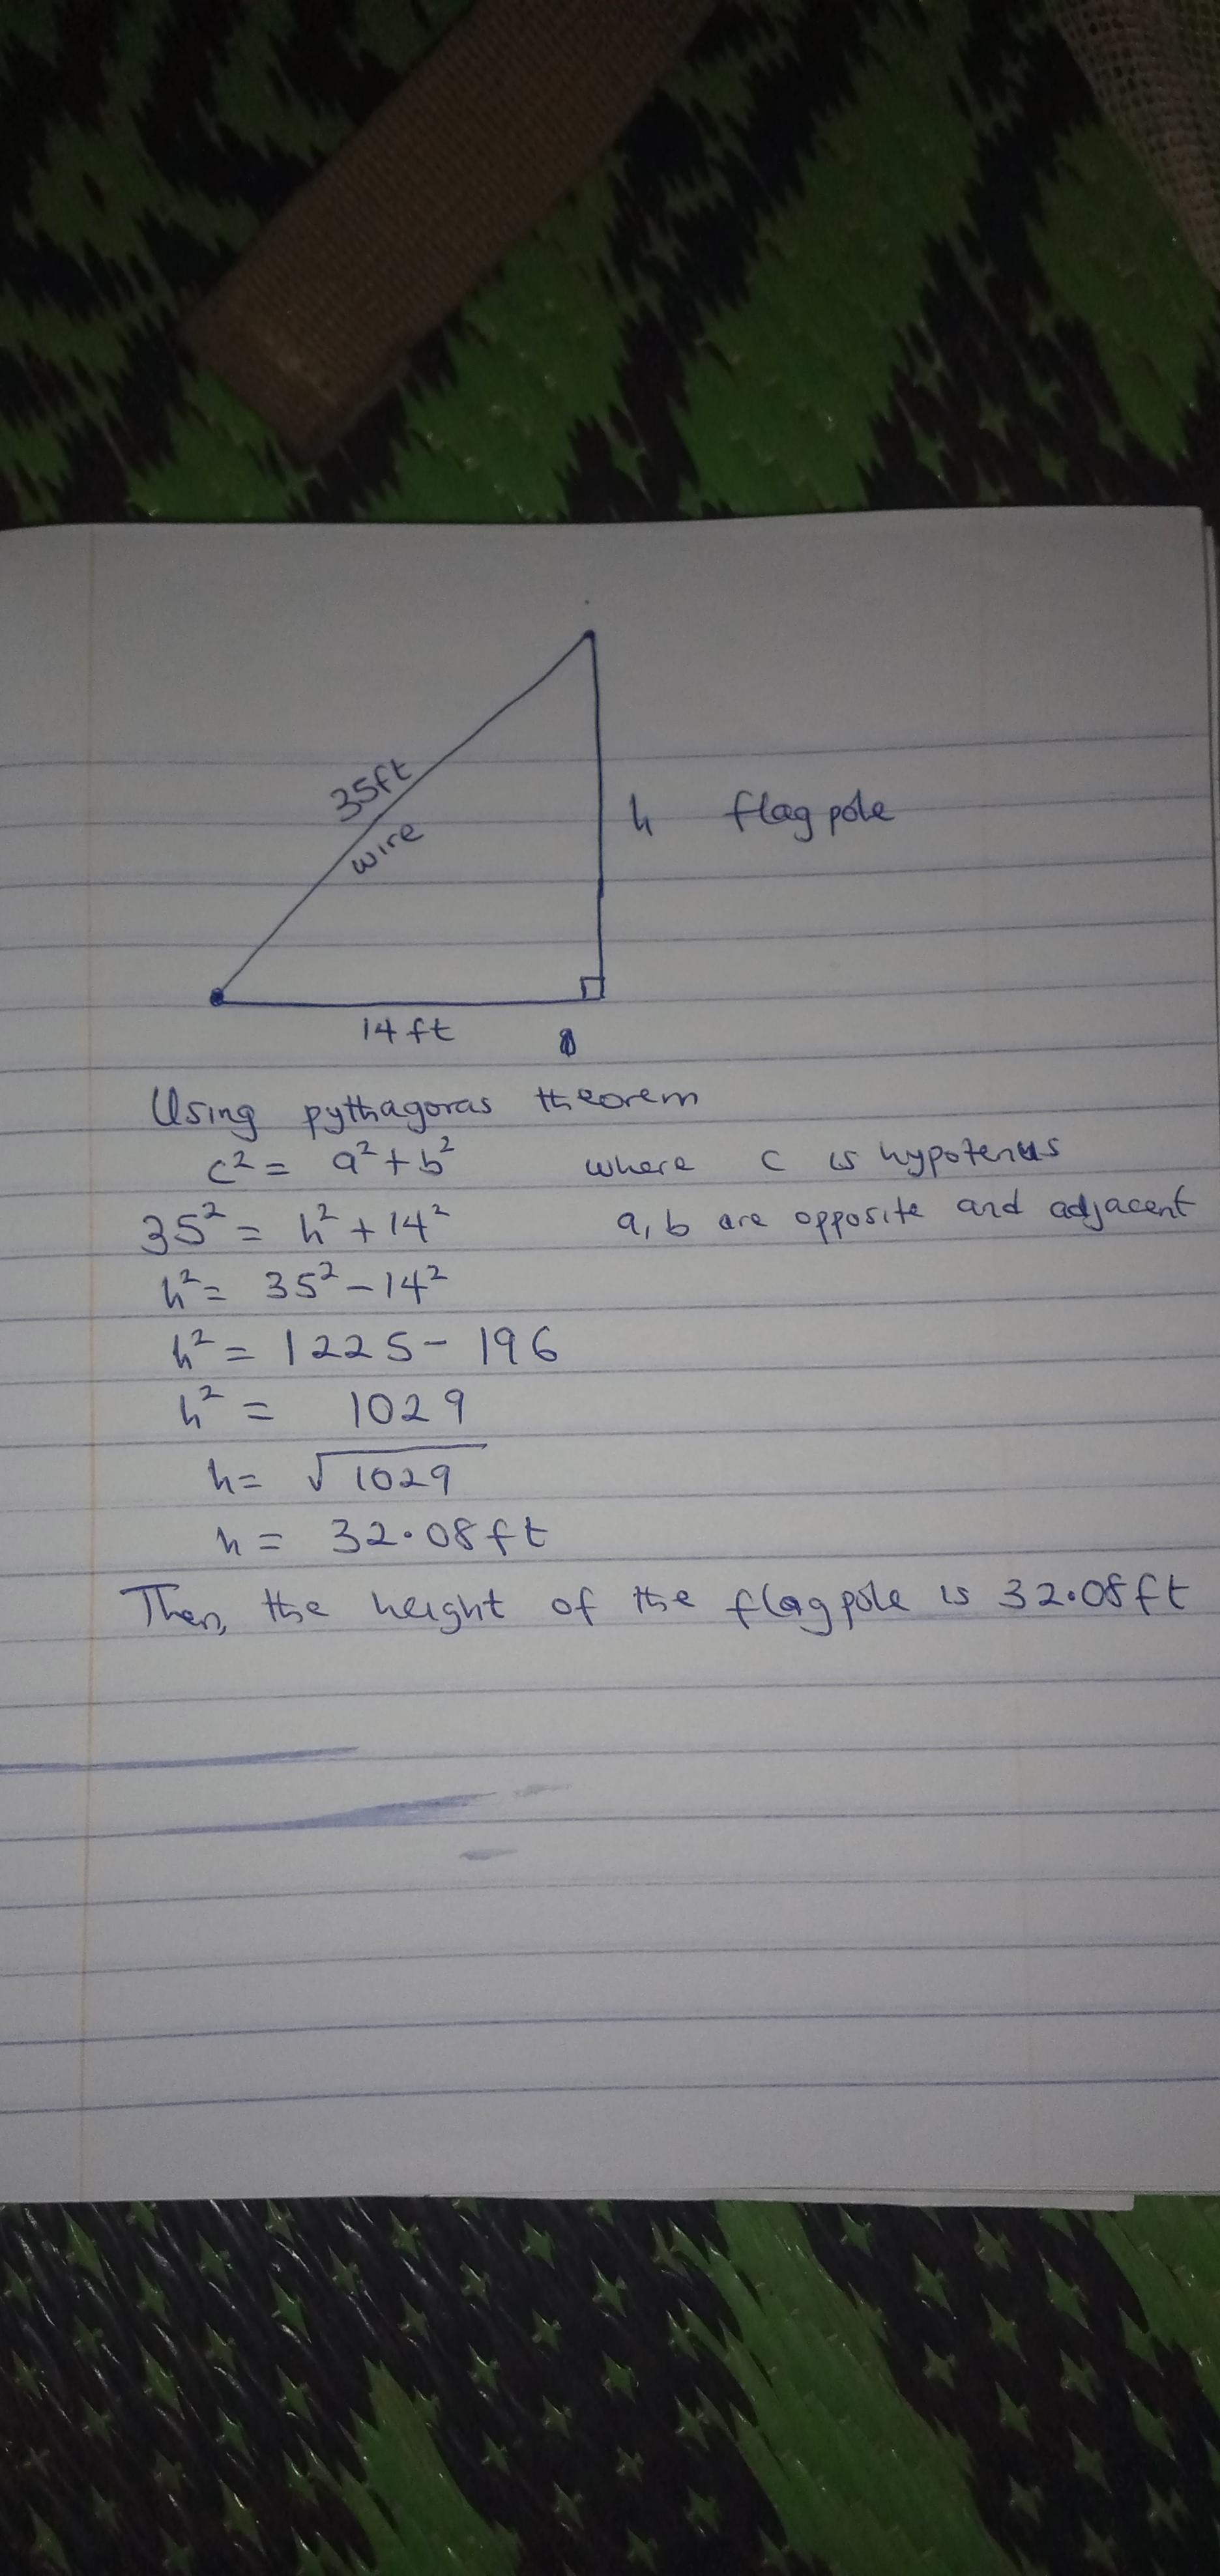 35ft
wire
h flagpole
14ft
Using pythagoras theorem
c² = a² + b² where c is hypotenus
35² = h² + 14² a, b are opposite and adjacent
h² = 35² - 14²
h² = 1225 - 196
h² = 1029
h = √1029
h = 32.08ft
Then, the height of the flagpole is 32.08ft